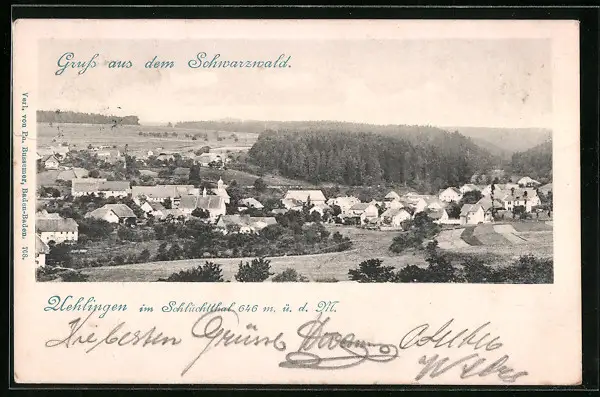 Gruß aus dem Schwarzwald.
Verl. von Pn. Bussemer, Baden-Baden. 768.
Uehlingen im Schlüchtthal 646 m. ü. d. M.
Herzlichsten Grüsse